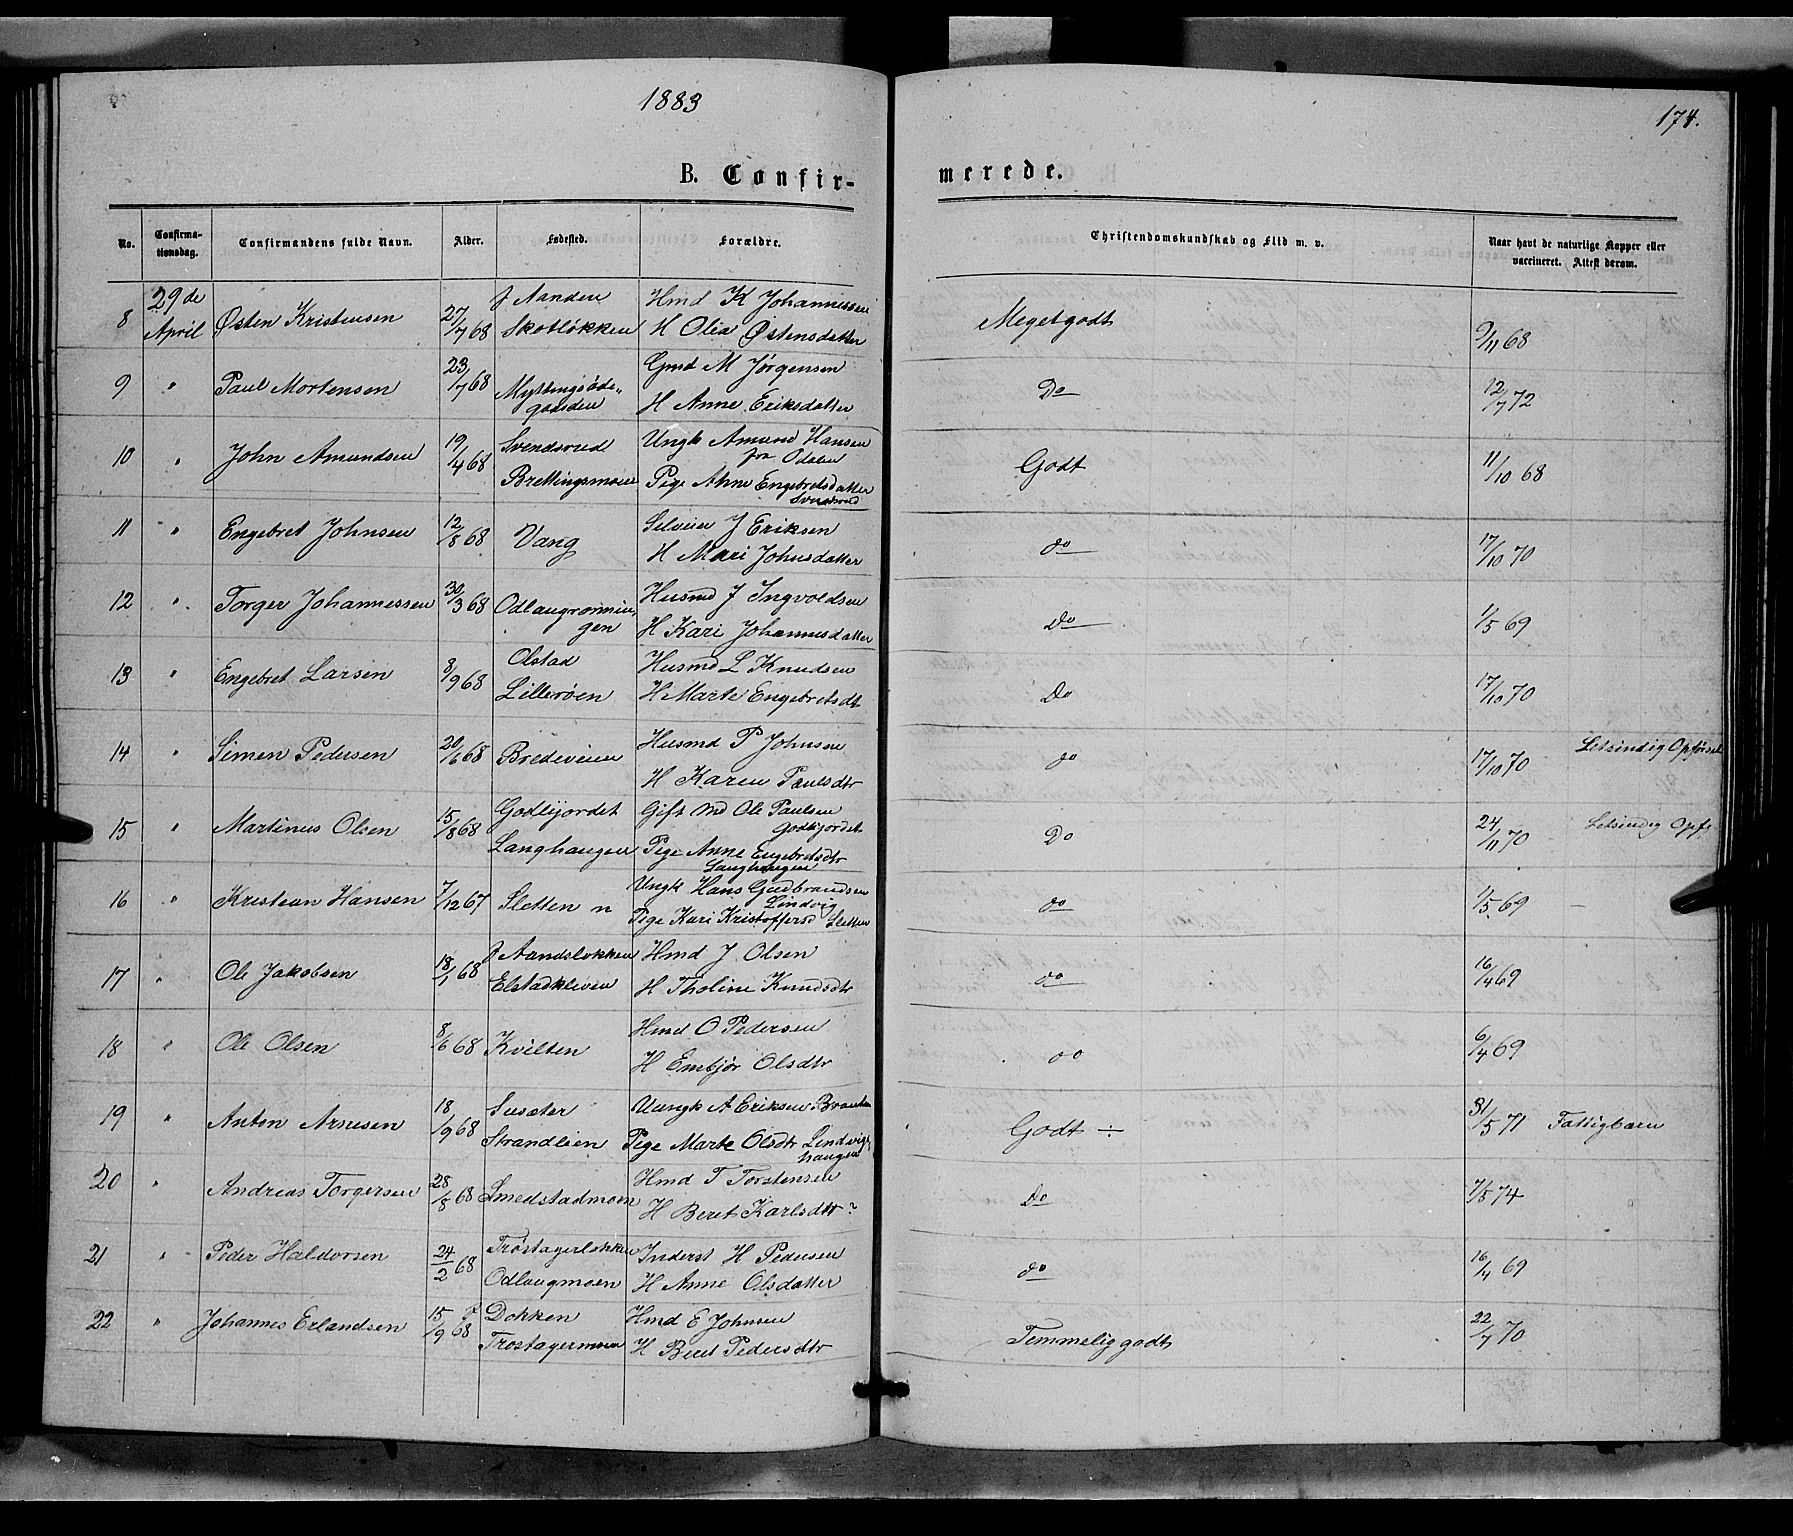 1883
174.
B. Confir-
merede.
No.
Confirma-
tionsdag.
Confirmandens fulde Navn.
Alder.
Fødested.
Forældre.
Christendomskundskab og Flid m. v.
Naar havt de naturlige Kopper eller
vaccineret. Attest derom.
8 29de April Østen Kristensen 27/7 68 f Aanden Skotløkken Hmd K Johannessen H Olea Østensdatter Meget godt 9/11 68
9 " Paul Mortensen 23/7 68 Myttingsøde- gaarden Gmd M Jørgensen H Anne Eriksdatter Do 12/7 72
10 " John Amundsen 19/4 68 Svendsrud Brettingsmoen Ungk Amund Hansen fra Odalen Pige Anne Engebretsdatter Svendsrud Godt 11/10 68
11 " Engebret Johnsen 12/8 68 Vang Selveier J Eriksen H Mari Johnsdatter do 17/10 70
12 " Torger Johannessen 30/3 68 Odlaugrønnin- gen Husmd J Ingvoldsen H Kari Johannesdatter Do 1/5 69
13 " Engebret Larsen 8/9 68 Olstad Lillerøen Husmd L Knudsen H Marte Engebretsdt Do 17/10 70
14 " Simen Pedersen 20/6 68 Bredeveien Husmd P Johnsen H Karen Paulsdtr do 17/10 70 Letsindig Opførsel
15 " Martinus Olsen 15/8 68 Godlijordet Langhaugen Gift Md Ole Paulsen Godlijordet Pige Anne Engebretsdtr Langhaugen Do 24/11 70 Letsindig Opf.
16 " Kristian Hansen 7/12 67 Sletten n Ungk Hans Gudbrandsen Lindvig Pige Kari Kristoffersd Sletten do 1/5 69 -
17 " Ole Jakobsen 18/1 68 f Aandsløkken Elstadkleven Hmd J Olsen H Tholine Knudsdtr do 16/4 69
18 " Ole Olsen 8/6 68 Kvilten Hmd O Pedersen H Embjør Olsdtr do 6/4 69
19 " Anton Arnesen 18/9 68 Susæter Strandlien Ungk A Eriksen Pige Marte Olsdtr Lindvig- haugen Godt ÷ 31/5 71 Fattigbarn
20 " Andreas Torgersen 28/8 68 Smedstadmoen Hmd T Torstensen H Beret Karlsdtr? Do 7/5 74
21 " Peder Haldorsen 24/2 68 Trøstagerløkken Odlaugmoen Inderst H Pedersen H Anne Olsdatter do 16/4 69
22 " Johannes Erlandsen 15/9 68 f Dokken Trøstagermoen Hmd E Johnsen H Beret Pedersdtr Temmelig godt 22/7 70